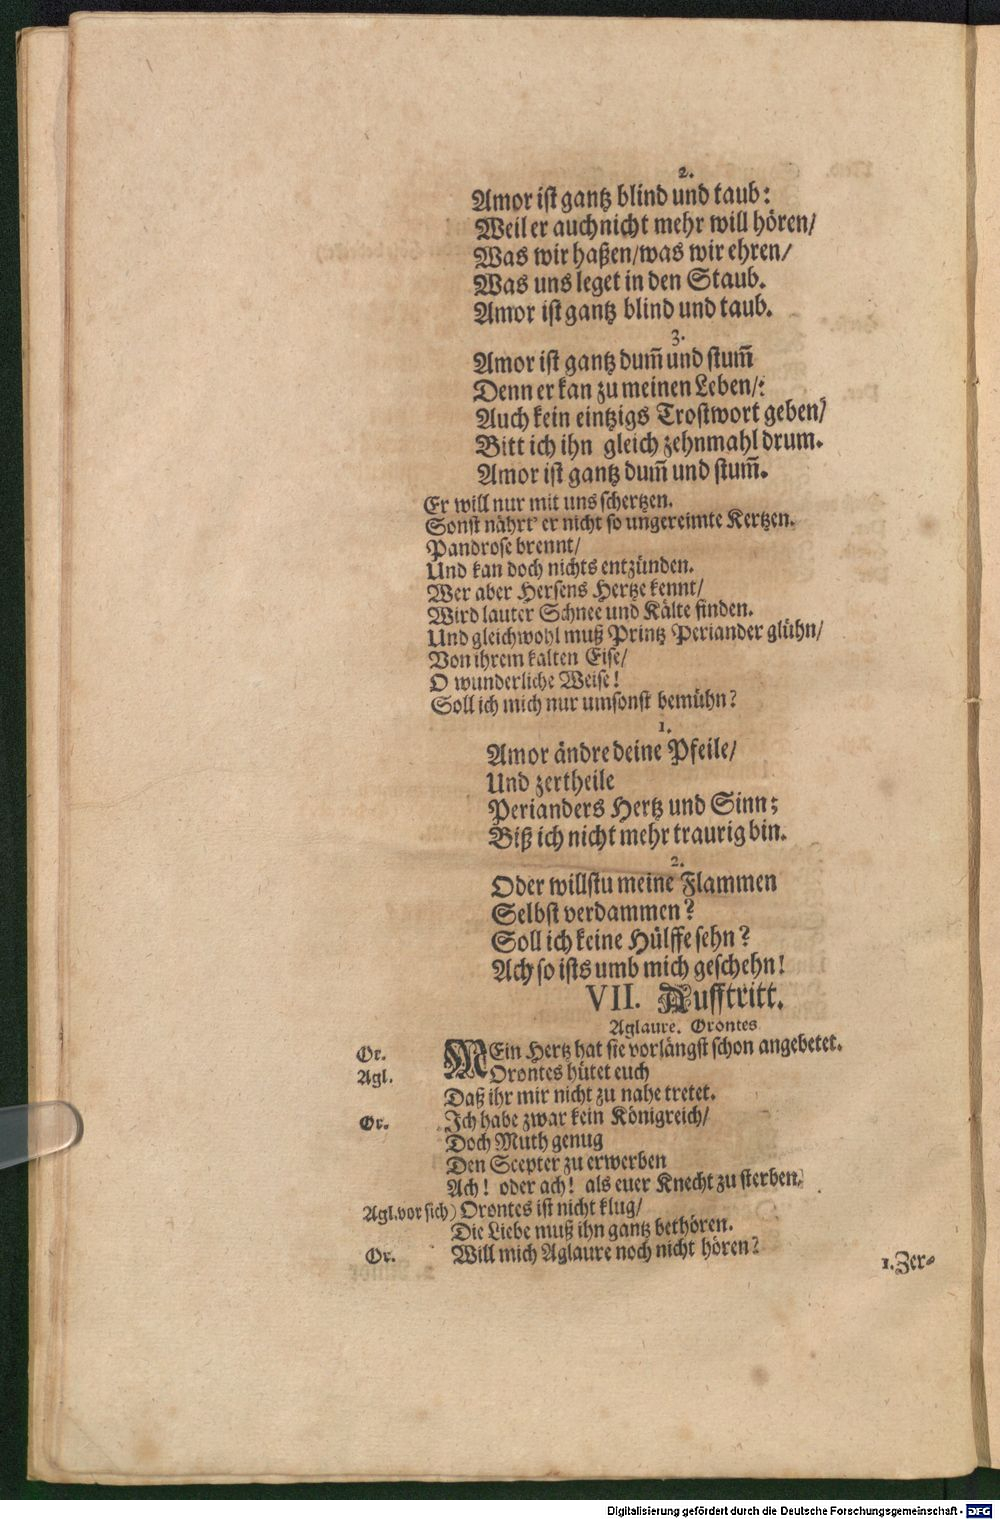 2.
Amor ist gantz blind und taub:
Weil er auch nicht mehr will hören/
Was wir haßen/was wir ehren/
Was uns leget in den Staub.
Amor ist gantz blind und taub.
3.
Amor ist gantz dum̃ und stum̃
Denn er kan zu meinen Leben/:
Auch kein eintzigs Trostwort geben/
Bitt ich ihn gleich zehnmahl drum.
Amor ist gantz dum̃ und stum̃.
Er will nur mit uns schertzen.
Sonst nährt' er nicht so ungereimte Kertzen.
Pandrose brennt/
Und kan doch nichts entzünden.
Wer aber Hersens Hertze kennt/
Wird lauter Schnee und Kälte finden.
Und gleichwohl muß Printz Periander glühn/
Von ihrem kalten Eise/
O wunderliche Weise!
Soll ich mich nur umsonst bemühn?
1.
Amor ändre deine Pfeile/
Und zertheile
Perianders Hertz und Sinn;
Biß ich nicht mehr traurig bin.
2.
Oder willstu meine Flammen
Selbst verdammen?
Soll ich keine Hülffe sehn?
Ach so ists umb mich geschehn!
VII. Aufftritt.
Aglaure. Orontes
Or. MEin Hertz hat sie vorlängst schon angebetet.
Agl. Orontes hütet euch
Daß ihr mir nicht zu nahe tretet.
Or. Ich habe zwar kein Königreich/
Doch Muth genug
Den Scepter zu erwerben
Ach! oder ach! als euer Knecht zu sterben.
Agl. vor sich) Orontes ist nicht klug/
Die Liebe muß ihn gantz bethören.
Or. Will mich Aglaure noch nicht hören?
1. Zer-
Digitalisierung gefördert durch die Deutsche Forschungsgemeinschaft - DFG